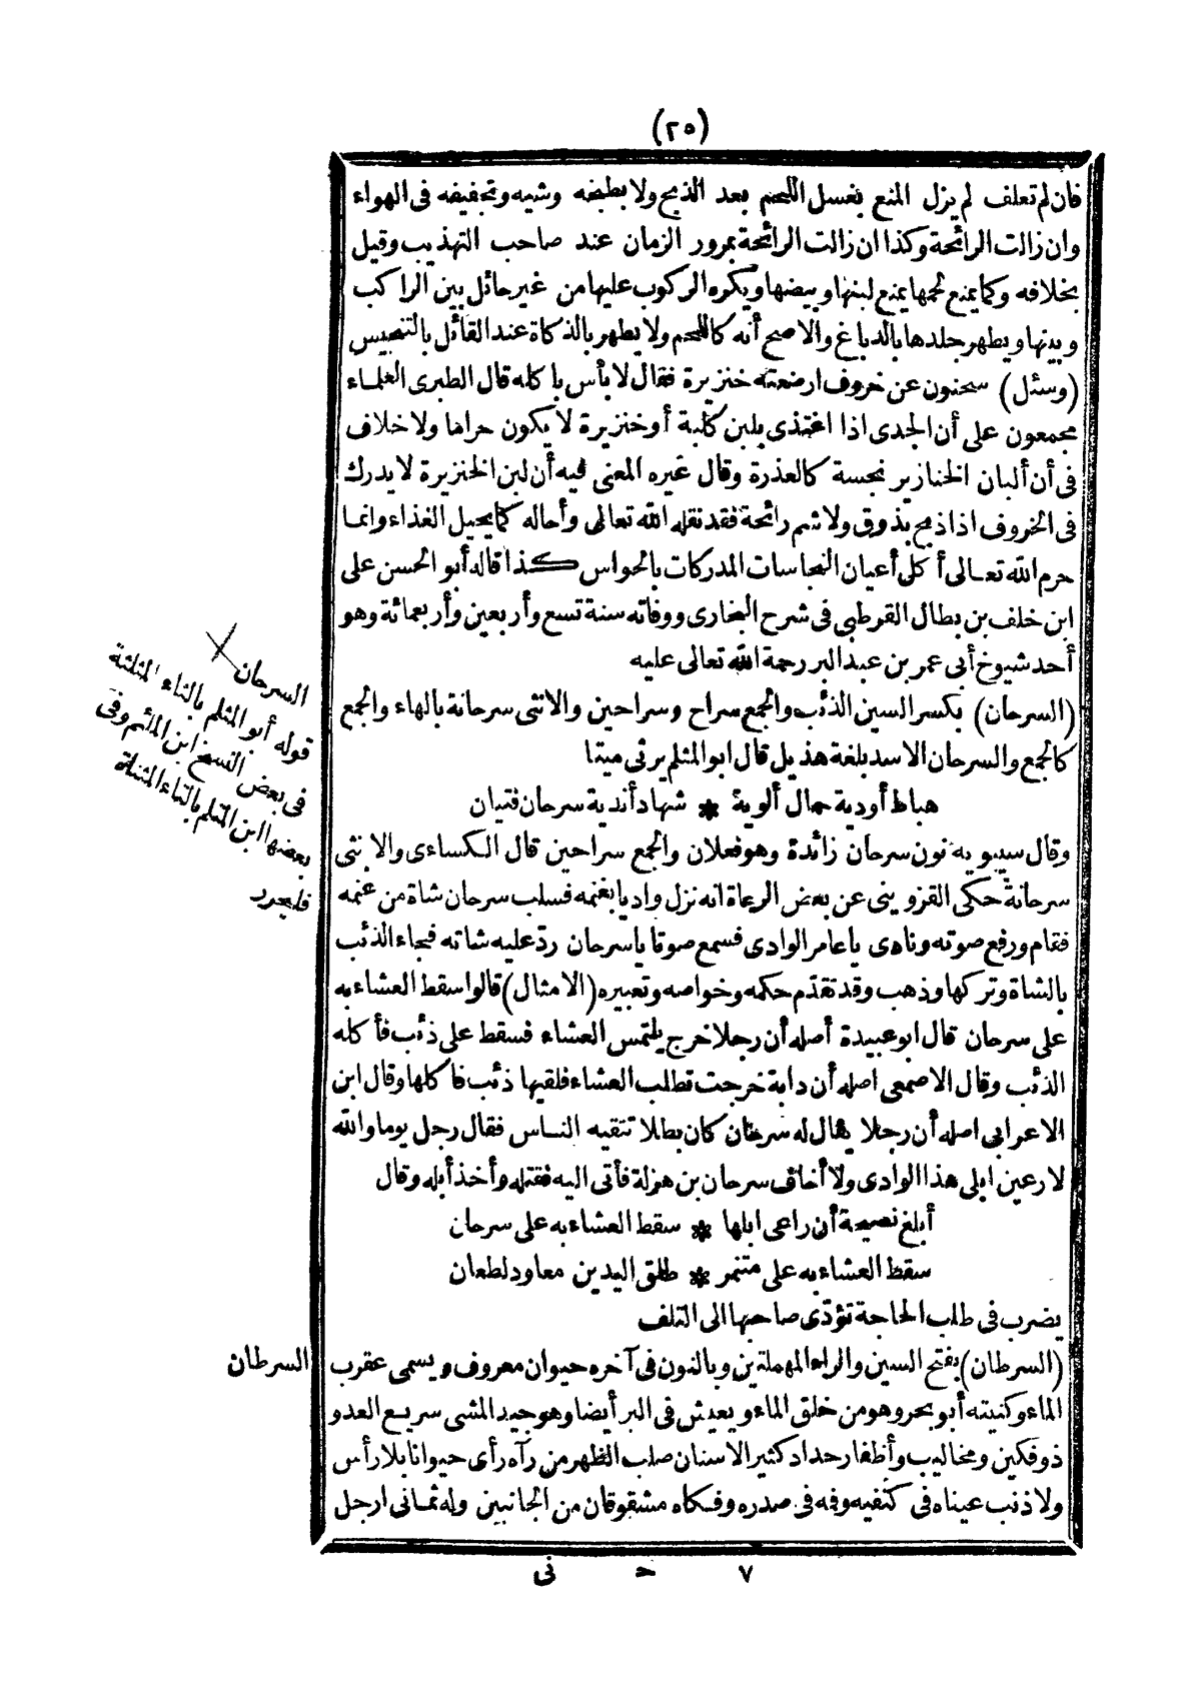 (٢٥)
فان لم تعلف لم يزل المنع بغسل اللحم بعد الذبح ولا بطبخه وشيه وتجفيفه فى الهواء
وان زالت الرائحة وكذا ان زالت الرائحة بمرور الزمان عند صاحب التهذيب وقيل
بخلافه وكما يمنع لحمها يمنع لبنها وبيضها ويكره الركوب عليها من غير حائل بين الراكب
وبينها ويطهر جلدها بالدباغ والاصح أنه كاللحم ولا يطهر بالذكاة عند القائل بالتنجيس
(وسئل) سحنون عن خروف ارضعته خنزيرة فقال لا بأس با كله قال الطبرى العلماء
مجمعون على أن الجدى اذا اغتذى بلبن كلبة أو خنزيرة لا يكون حراما ولا خلاف
فى أن ألبان الخنازير نجسة كالعذرة وقال غيره المعنى فيه أن لبن الخنزيرة لا يدرك
فى الخروف اذا ذبح بذوق ولا شم رائحة فقد نقله الله تعالى وأحاله كما يحيل الغذاء وانما
حرم الله تعالى أكل أعيان النجاسات المدركات بالحواس كذا قاله أبو الحسن على
ابن خلف بن بطال القرطبى فى شرح البخارى ووفاته سنة تسع وأربعين وأربعمائة وهو
أحد شيوخ أبى عمر بن عبد البر رحمة الله تعالى عليه
(السرحان) بكسر السين الذئب والجمع سراح وسراحين والانثى سرحانة بالهاء والجمع
كالجمع والسرحان الاسد بلغة هذيل قال ابو المثلم يرثى ميتا
هباط أودية حمال ألوية * شهاد أندية سرحان فتيان
وقال سيبويه نون سرحان زائدة وهو فعلان والجمع سراحين قال الكساءى والانثى
سرحانة حكى القزوينى عن بعض الرعاة انه نزل واديا بغنمه فسلب سرحان شاة من غنمه
فقام ورفع صوته ونادى يا عامر الوادى فسمع صوتا يا سرحان ردّ عليه شاته فجاء الذئب
بالشاة وتركها وذهب وقد تقدّم حكمه وخواصه وتعبيره (الامثال) قالوا سقط العشاء به
على سرحان قال ابو عبيدة أصله أن رجلا خرج يلتمس العشاء فسقط على ذئب فأكله
الذئب وقال الاصمعى اصله أن دابة خرجت تطلب العشاء فلقيها ذئب فاكلها وقال ابن
الاعرابى اصله أن رجلا يقال له سرحان كان بطلا تتقيه الناس فقال رجل يوما والله
لارعين ابلى هذا الوادى ولا أخاف سرحان بن هزلة فأتى اليه فقتله وأخذ أبله وقال
أبلغ نصيحة أن راعى ابلها * سقط العشاء به على سرحان
سقط العشاء به على متنمر * طلق اليدين معاود لطعان
يضرب فى طلب الحاجة تؤدّى صاحبها الى التلف
(السرطان) بفتح السين والراء المهملتين وبالنون فى آخره حيوان معروف ويسمى عقرب
الماء وكنيته أبو بحر وهو من خلق الماء ويعيش فى البر أيضا وهو جيد المشى سريع العدو
ذو فكين ومخاليب وأظفار حداد كثير الاسنان صلب الظهر من رآه رأى حيوانا بلا رأس
ولا ذنب عيناه فى كتفيه وفمه فى صدره وفكاه مشقوقان من الجانبين وله ثمانى ارجل
السرحان
قوله أبو المثلم بالثاء المثلثة
فى بعض النسخ ابن المائم وفى
بعضها ابن المتلم بالتاء المثناة
فليحرر
السرطان
٧ حـ نى